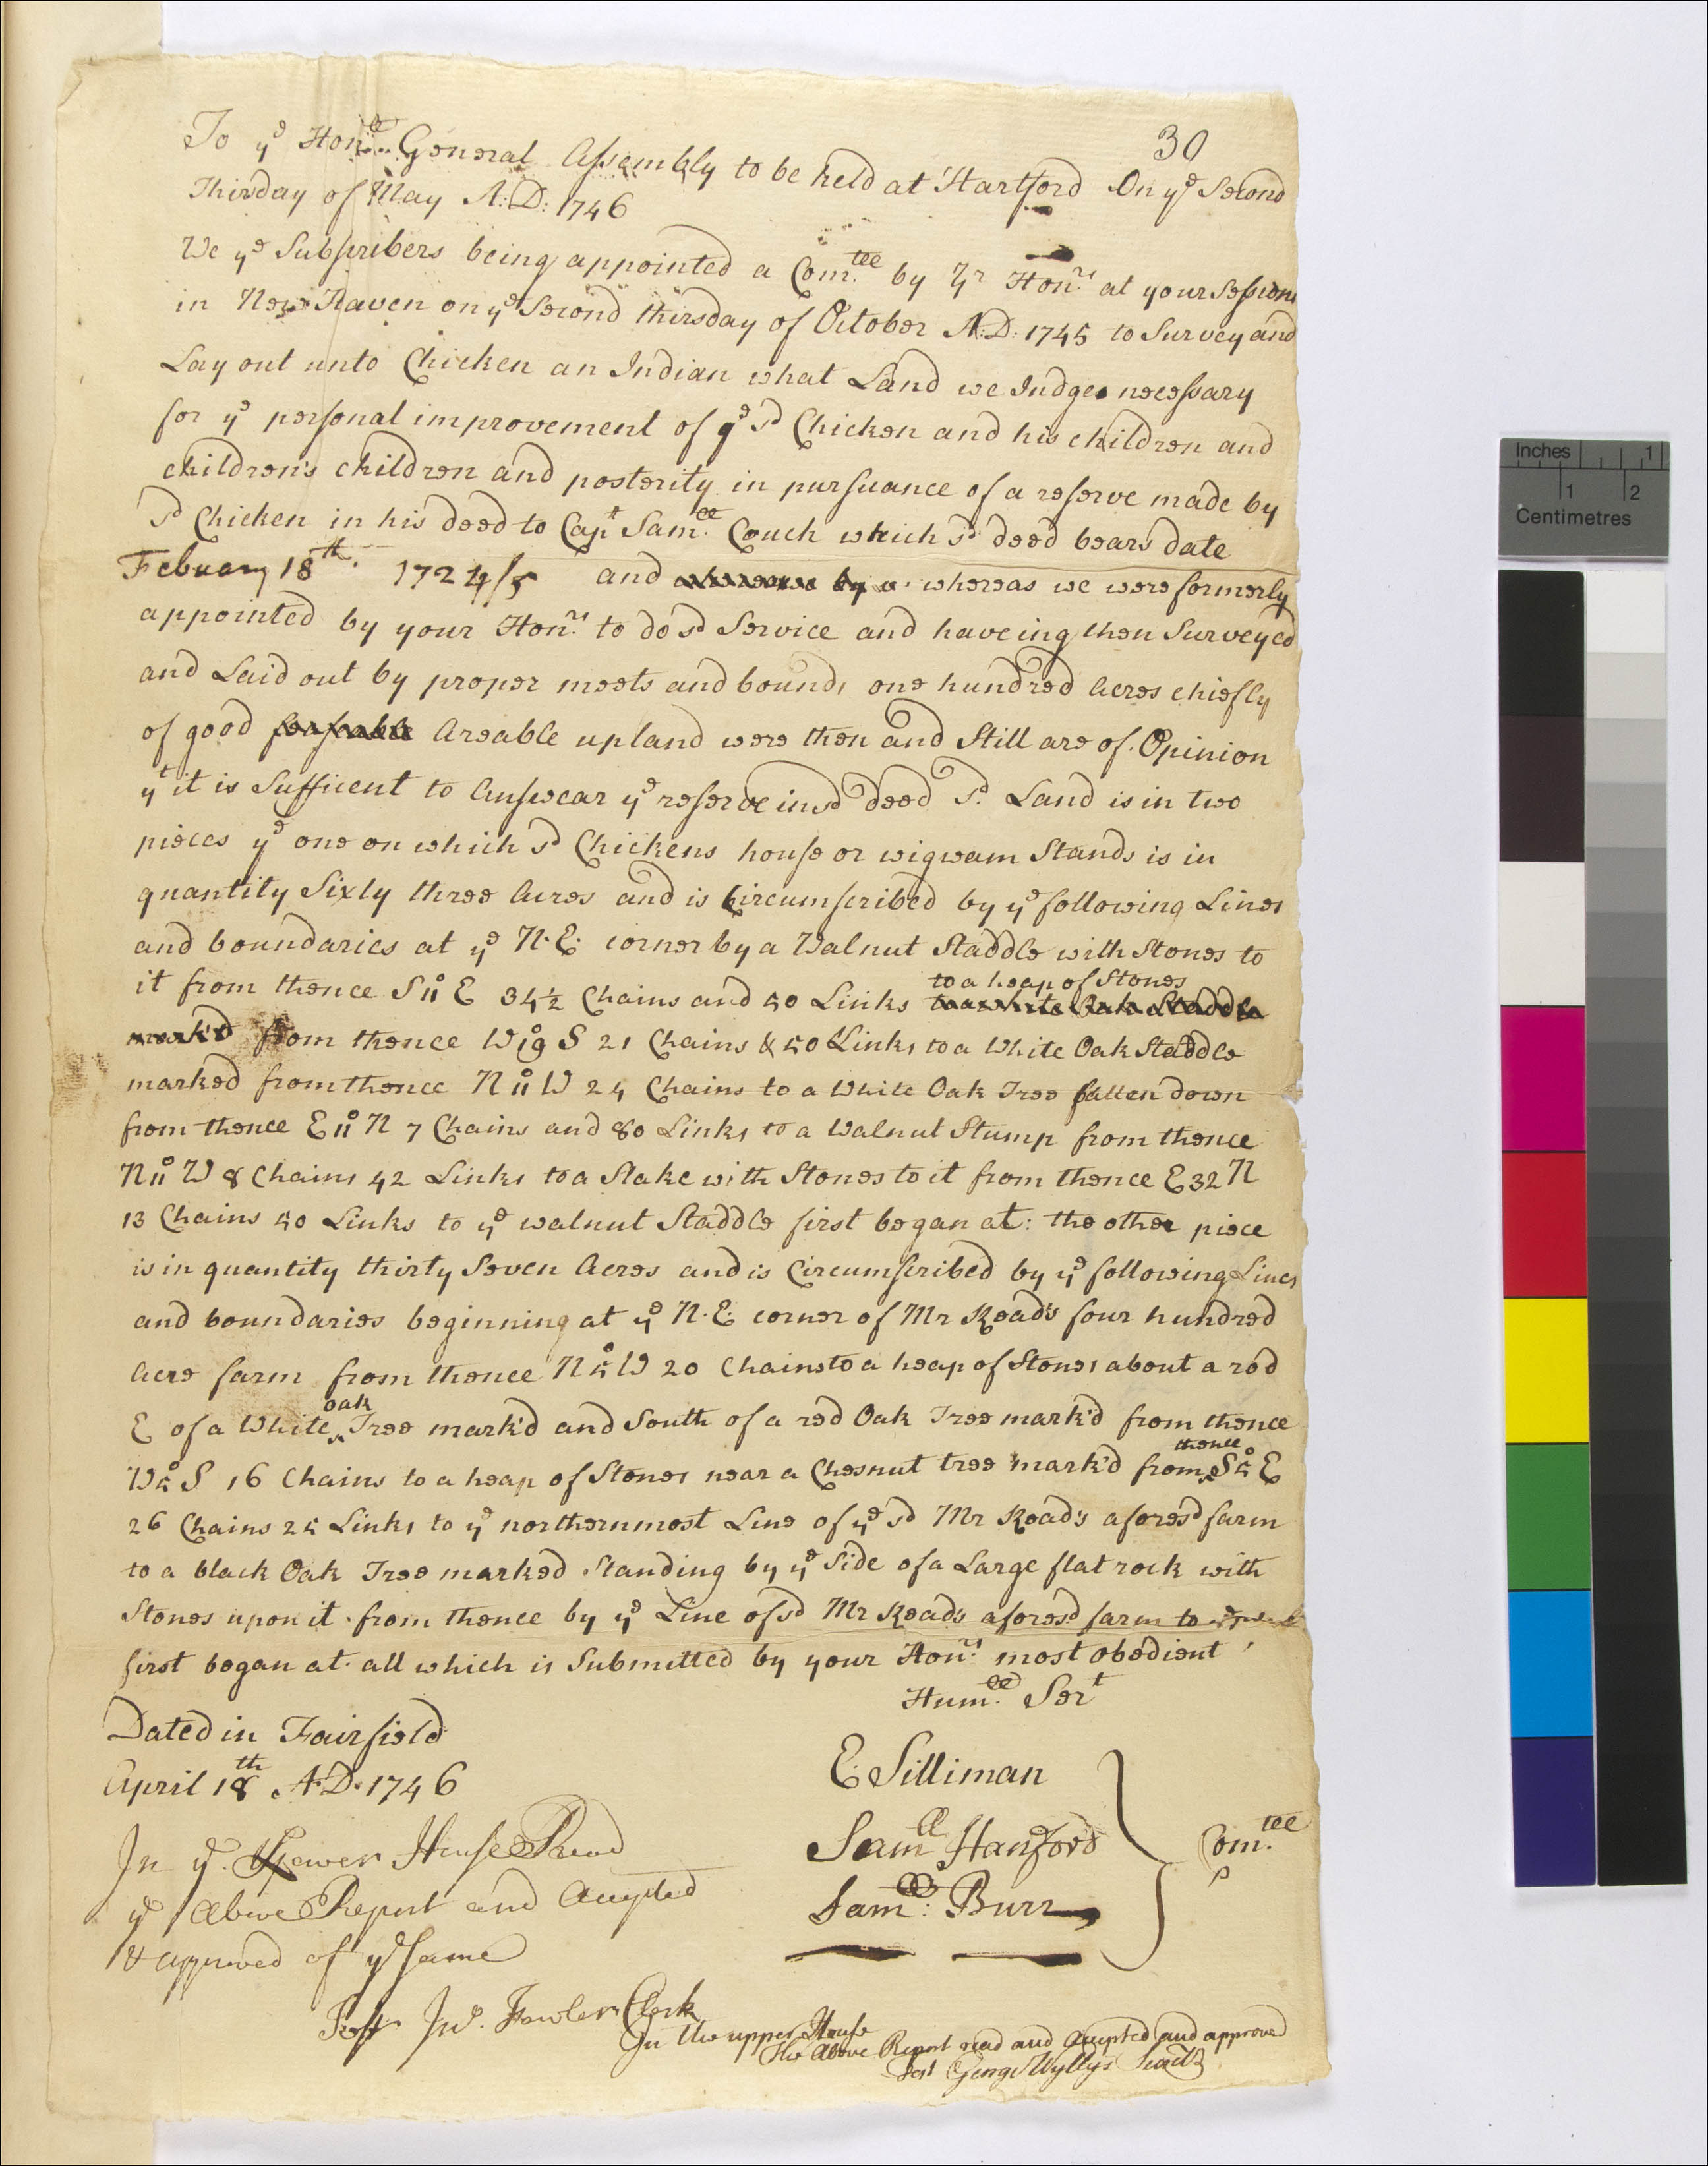 30
To yᵉ Honᵇˡᵉ General Assembly to be held at Hartford On yᵉ Second
Thirsday of May A:D: 1746
We yᵉ Subscribers being appointed a Comᵗᵉᵉ by Yʳ Honʳˢ at your Session
in New Haven on yᵉ Second thirsday of October A:D: 1745 to Survey and
Lay out unto Chicken an Indian what Land we Judge necessary
for yᵉ personal improvement of yᵉ sᵈ Chicken and his children and
children's children and posterity in pursuance of a reserve made by
sᵈ Chicken in his deed to Capᵗ Samˡˡ Couch which sᵈ deed bears date
Febuary 18ᵗʰ 1724/5 and whereas we were formerly
appointed by your Honʳˢ to do sᵈ Service and haveing then Surveyed
and Laid out by proper meets and bounds one hundred Acres chiefly
of good Areable upland were then and Still are of Opinion
yᵗ it is Sufficent to Answear yᵉ reserve in sᵈ deed sᵈ Land is in two
pieces yᵉ one on which sᵈ Chickens house or wigwam Stands is in
quantity Sixty three Acres and is Circumscribed by yᵉ following Lines
and boundaries at yᵉ N.E. corner by a Walnut Staddle with Stones to
it from thence S 11° E 34½ Chains and 50 Links to a heap of Stones to a white Oak Staddle
mark'd from thence W 19° S 21 Chains & 50 Links to a White Oak Staddle
marked from thence N 11° W 24 Chains to a White Oak Tree fallen down
from thence E 11° N 7 Chains and 80 Links to a Walnut Stump from thence
N 11° W 8 Chains 42 Links to a Stake with Stones to it from thence E 32 N
13 Chains 50 Links to yᵉ walnut Staddle first began at: the other piece
is in quantity thirty Seven Acres and is Circumscribed by yᵉ following Lines
and boundaries beginning at yᵉ N.E. corner of Mr Read's four hundred
Acre farm from thence N 5° W 20 Chains to a heap of Stones about a rod
E of a White oak Tree mark'd and South of a red Oak Tree mark'd from thence
W 5° S 16 Chains to a heap of Stones near a Chesnut tree mark'd from thence S 5° E
26 Chains 25 Links to yᵉ northernmost Line of yᵉ sᵈ Mr Read's aforesᵈ farm
to a black Oak Tree marked Standing by yᵉ Side of a Large flat rock with
Stones upon it from thence by yᵉ Line of sᵈ Mr Reads aforesᵈ farm to
first began at. all which is Submitted by your Honʳˢ most obedient
Humˡˡ Serᵗ
Dated in Fairfield
April 18ᵗʰ A.D. 1746
E. Silliman
Samˡˡ Hanford
Samˡˡ: Burr
Comᵗᵉᵉ
In yᵉ Lower House Read
yᵉ Above Report and Accepted
& approved of yᵉ Same
Test Jnᵒ. Fowler Clerk
In the upper House
The Above Report read and Accepted and approved
Test George Wyllys Secretʳʸ